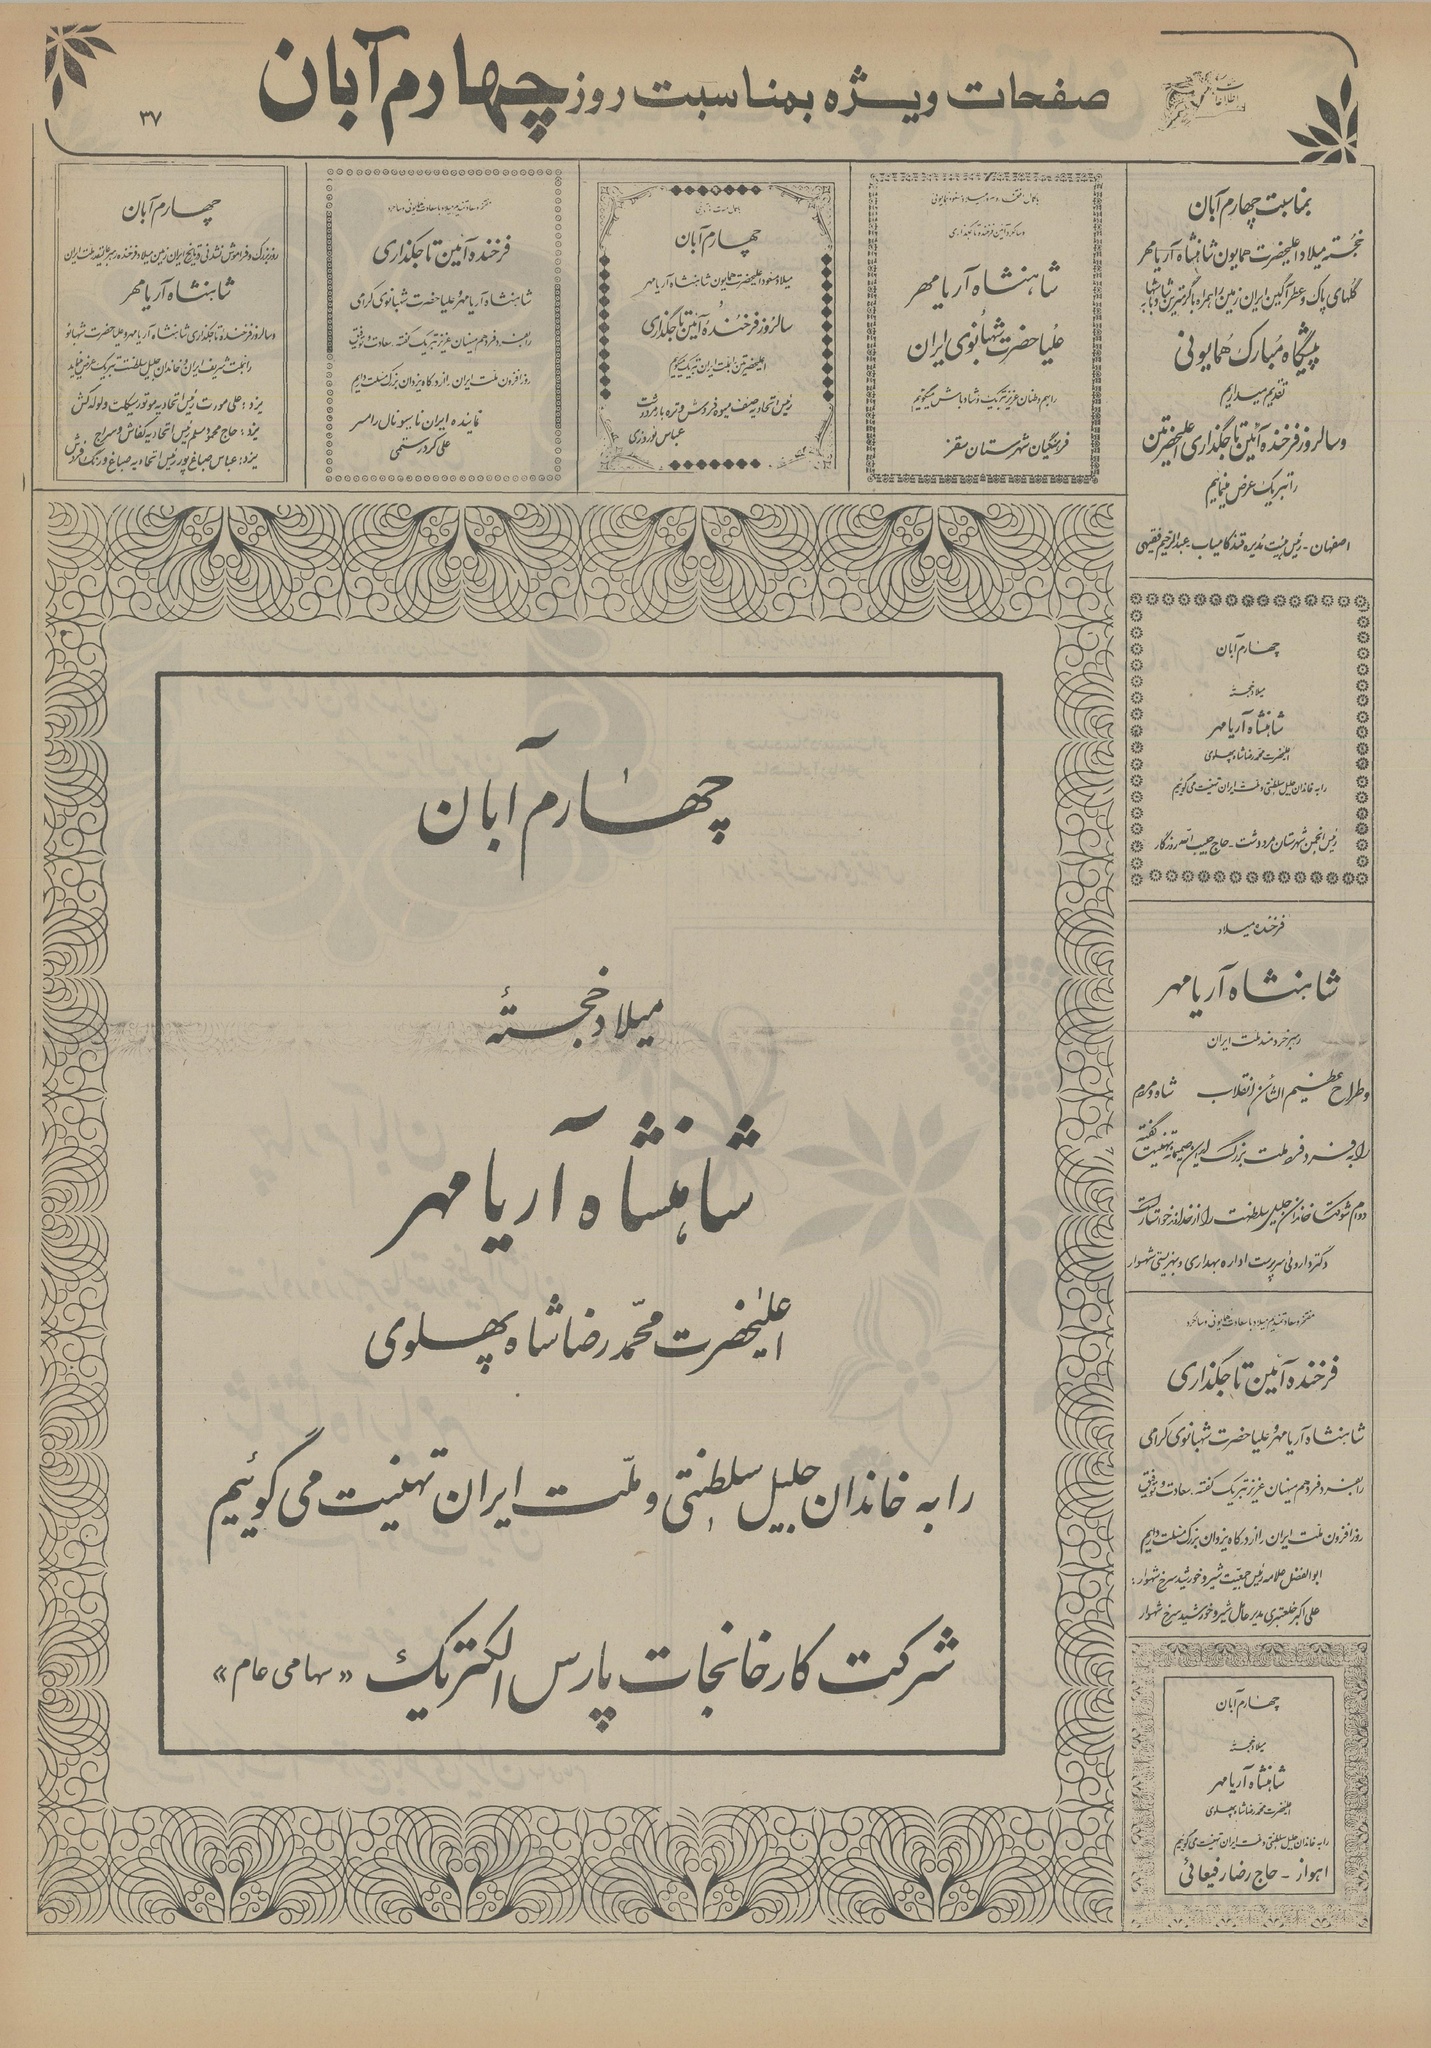 صفحات ویژه بمناسبت روز چهارم آبان
اطلاعات
۳۷
بمناسبت چهارم آبان
خجسته میلاد اعلیحضرت همایون شاهنشاه آریامهر
گلهای پاک و عطرآگین ایران زمین را همراه با گرمترین شادباشها به
پیشگاه مبارک همایونی
تقدیم میداریم
و سالروز فرخنده آئین تاجگذاری اعلیحضرتین
را تبریک عرض مینمائیم
اصفهان - رئیس هیئت مدیره قند کامیاب - عبدالرحیم فقیهی
شاهنشاه آریامهر
علیاحضرت شهبانوی ایران
را بهم وطنان عزیز تبریک و شادباش میگوئیم
فرهنگیان شهرستان سقز
چهارم آبان
میلاد مسعود اعلیحضرت همایون شاهنشاه آریامهر
و
سالروز فرخنده آئین تاجگذاری
رئیس اتحادیه صنف میوه فروش و تره بار مرودشت
عباس نوروزی
فرخنده آئین تاجگذاری
شاهنشاه آریامهر و علیاحضرت شهبانوی گرامی
را بفرد فرد هم میهنان عزیز تبریک گفته، سعادت و توفیق
روزافزون ملت ایران را از درگاه یزدان بزرگ مسئلت داریم
نماینده ایران ناسیونال رامسر
علی کردرستمی
چهارم آبان
روز بزرگ و فراموش نشدنی تاریخ ایران زمین میلاد فرخنده رهبر عالیقدر ملت ایران
شاهنشاه آریامهر
و سالروز فرخنده تاجگذاری شاهنشاه آریامهر و علیاحضرت شهبانو
را بملت شریف ایران و خاندان جلیل سلطنت تبریک عرض مینماید
یزد : علی مورت رئیس اتحادیه موتورسیکلت و لوله کش
یزد : حاج محمود مسلم رئیس اتحادیه کفاش و سراج
یزد : عباس صباغ پور رئیس اتحادیه صباغ و رنگ فروش
چهارم آبان
میلاد خجسته
شاهنشاه آریامهر
اعلیحضرت محمد رضا شاه پهلوی
را به خاندان جلیل سلطنتی و ملت ایران تهنیت می گوئیم
رئیس انجمن شهرستان مرودشت - حاج حبیب الله روزگار
فرخنده میلاد
شاهنشاه آریامهر
رهبر خردمند ملت ایران
و طراح عظیم الشأن انقلاب شاه و مردم
را به فرد فرد ملت بزرگ ایران صمیمانه تهنیت گفته
دوام شوکت خاندان جلیل سلطنت را از خداوند خواستار است
دکتر دارویی سرپرست اداره بهداری و بهزیستی شهسوار
فرخنده آئین تاجگذاری
شاهنشاه آریامهر و علیاحضرت شهبانوی گرامی
را بفرد فرد هم میهنان عزیز تبریک گفته، سعادت و توفیق
روزافزون ملت ایران را از درگاه یزدان بزرگ مسئلت داریم
ابوالفضل علامه رئیس جمعیت شیر و خورشید سرخ شهسوار :
علی اکبر خلعتبری مدیر عامل شیر و خورشید سرخ شهسوار
چهارم آبان
میلاد خجسته
شاهنشاه آریامهر
اعلیحضرت محمد رضا شاه پهلوی
را به خاندان جلیل سلطنتی و ملت ایران تهنیت می گوئیم
اهواز - حاج رضا رفیعائی
چهارم آبان
میلاد خجستهٔ
شاهنشاه آریامهر
اعلیحضرت محمّد رضا شاه پهلوی
را به خاندان جلیل سلطنتی و ملّت ایران تهنیت می گوئیم
شرکت کارخانجات پارس الکتریک «سهامی عام»